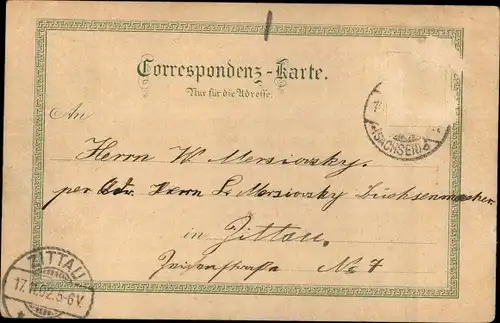 Correspondenz-Karte.
Nur für die Adresse.
An
Herrn W. Mersiovsky.
per Adr. Herrn L. Mersiovsky Büchsenmacher
in Zittau.
No. 7
(SACHSEN)
ZITTAU
17.11.02.5-6V.